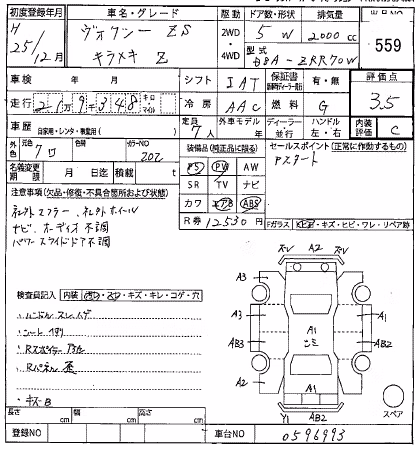 初度登録年月
車名・グレード
駆動
ドア数・形状
排気量
出品NO
H
25/12月
ヴォクシー ZS
キラメキ Z
2WD
・
4WD
5 W
2000 cc
型式
DBA-ZRR70W
559
車検 年 月
シフト
IAT
保証書
有・無
評価点
走行
21万9千348
キロ
マイル
冷房
AAC
燃料
G
3.5
車歴
自家用・レンタ・事業用( )
定員
7人
外車モデル
年
ディーラー
並行
ハンドル
左・右
内装
評価
C
外色
元色
クロ
色替
カラーNO
202
装備品(純正品に限る)
PS PW AW
SR TV ナビ
カワ エアB ABS
R券 12530円
セールスポイント(正常に作動するもの)
Pスタート
名義変更
期限
月 日迄
積載 t
注意事項(欠品・修復・不具合箇所および状態)
社外マフラー、社外ホイール
ナビ、オーディオ不調
パワースライドドア不調
Fガラス
キズ・ヒビ・ワレ・リペア跡
検査員記入
内装
キズ・キレ・コゲ・穴
・ハンドルスレ、ハゲ
・キズB
A2
A3
A3
A1
A1
A1
AB3
AB2
A2
A1
Y1
AB2
スペア
長さ cm
幅 cm
高さ cm
登録NO
車台NO
0596993